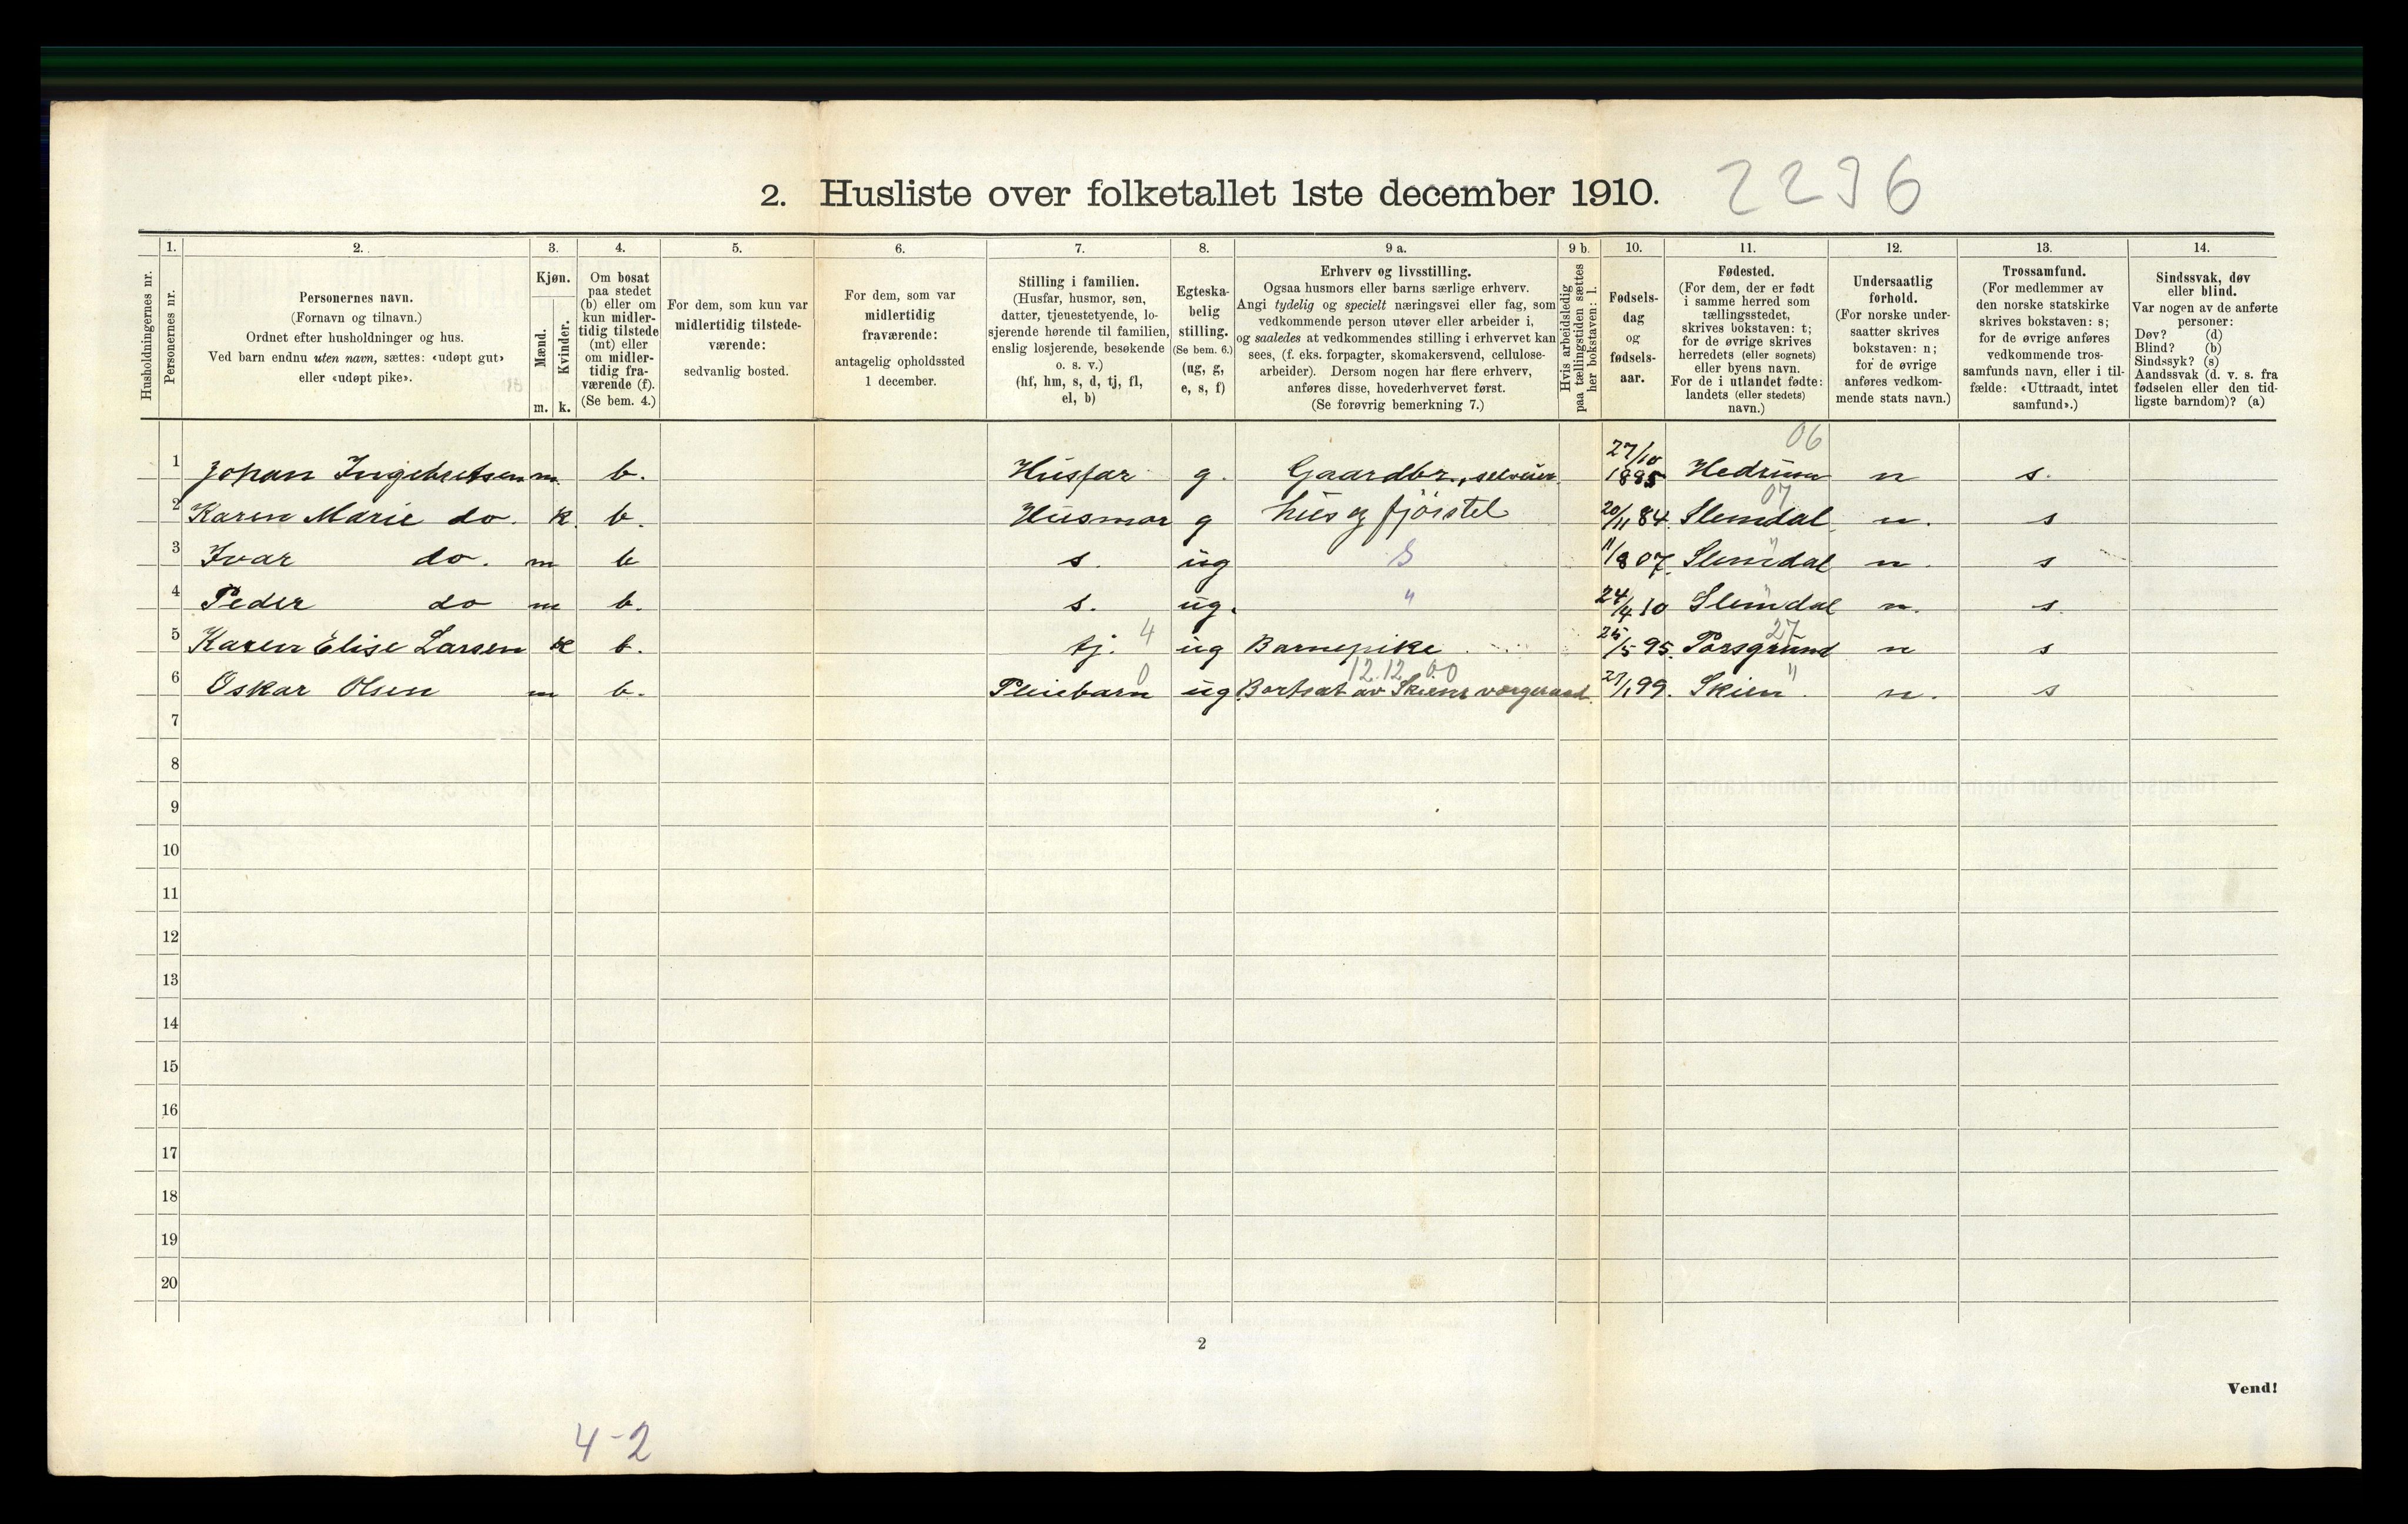 2. Husliste over folketallet 1ste december 1910. 2296
Husholdningernes nr.
1. Personernes nr.
2. Personernes navn.
(Fornavn og tilnavn.)
Ordnet efter husholdninger og hus.
Ved barn endnu uten navn, sættes: «udøpt gut»
eller «udøpt pike».
3. Kjøn.
Mænd. Kvinder.
m. k.
4. Om bosat
paa stedet
(b) eller om
kun midler-
tidig tilstede
(mt) eller
om midler-
tidig fra-
værende (f).
(Se bem. 4.)
5. For dem, som kun var
midlertidig tilstede-
værende:
sedvanlig bosted.
6. For dem, som var
midlertidig
fraværende:
antagelig opholdssted
1 december.
7. Stilling i familien.
(Husfar, husmor, søn,
datter, tjenestetyende, lo-
sjerende hørende til familien,
enslig losjerende, besøkende
o. s. v.)
(hf, hm, s, d, tj, fl,
el, b)
8. Egteska-
belig
stilling.
(Se bem. 6.)
(ug, g,
e, s, f)
9 a. Erhverv og livsstilling.
Ogsaa husmors eller barns særlige erhverv.
Angi tydelig og specielt næringsvei eller fag, som
vedkommende person utøver eller arbeider i,
og saaledes at vedkommendes stilling i erhvervet kan
sees, (f. eks. forpagter, skomakersvend, cellulose-
arbeider). Dersom nogen har flere erhverv,
anføres disse, hovederhvervet først.
(Se forøvrig bemerkning 7.)
9 b. Hvis arbeidsledig
paa tællingstiden sættes
her bokstaven: l.
10. Fødsels-
dag
og
fødsels-
aar.
11. Fødested.
(For dem, der er født
i samme herred som
tællingsstedet,
skrives bokstaven: t;
for de øvrige skrives
herredets (eller sognets)
eller byens navn.
For de i utlandet fødte:
landets (eller stedets)
navn.)
12. Undersaatlig
forhold.
(For norske under-
saatter skrives
bokstaven: n;
for de øvrige
anføres vedkom-
mende stats navn.)
13. Trossamfund.
(For medlemmer av
den norske statskirke
skrives bokstaven: s;
for de øvrige anføres
vedkommende tros-
samfunds navn, eller i til-
fælde: «Uttraadt, intet
samfund».)
14. Sindssvak, døv
eller blind.
Var nogen av de anførte
personer:
Døv? (d)
Blind? (b)
Sindssyk? (s)
Aandssvak (d. v. s. fra
fødselen eller den tid-
ligste barndom)? (a)
06
1 Johan Ingebretsen m. b. Husfar g. Gaardbr., selveier. 27/10 1885 Hedrum n s.
07
2 Karen Marie do. k. b. Husmor g hus og fjøistel 20/11 84. Slemdal n. s
3 Ivar do. m b s. ug S 11/8 07. Slemdal " n. s
4 Peder do m b. s. ug. " 24/4 10 Slemdal n. s.
4 27
5 Karen Elise Larsen k b. tj. ug Barnepike 25/5 95. Porsgrund n s
0 12.12.00
6 Oskar Olsen m b. Pleiebarn ug Bortsat av Skiens vergeraad. 27/1 99. Skien " n. s
7
8
9
10
11
12
13
14
15
16
17
18
19
20
2
Vend!
4-2